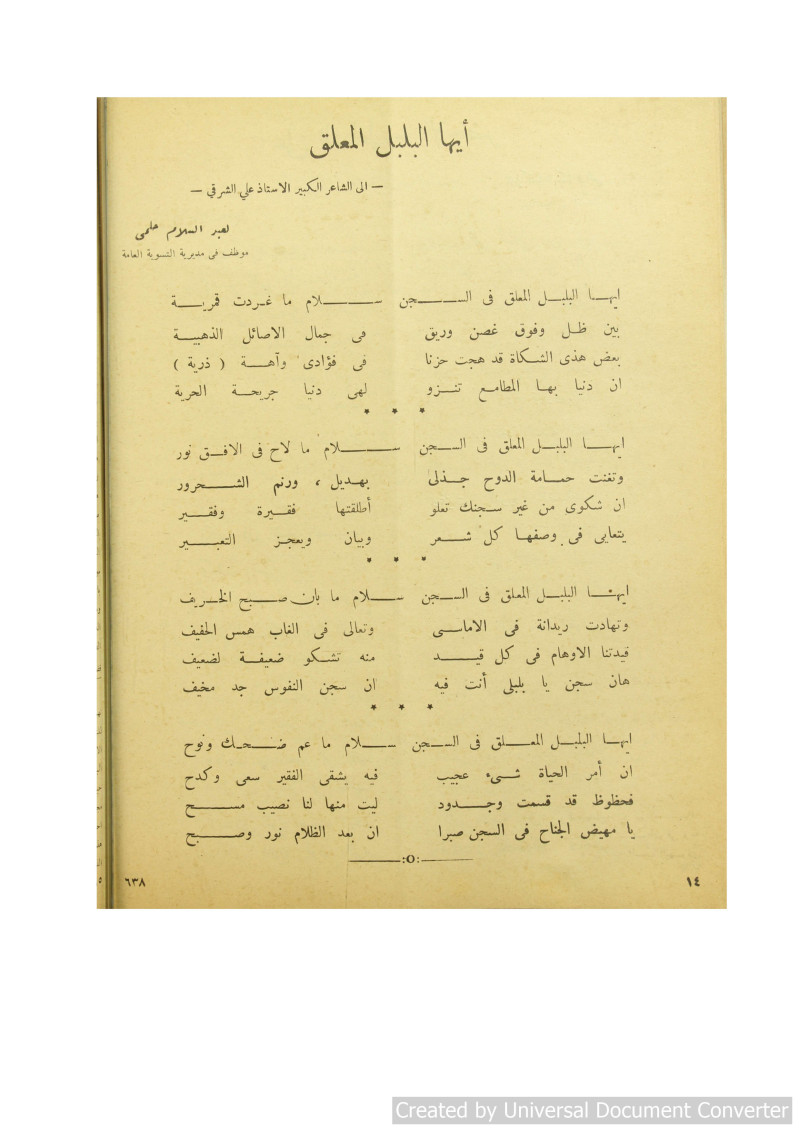 أيها البلبل المعلق
— الى الشاعر الكبير الاستاذ علي الشرقي —
لعبد السلام حلمي
موظف في مديرية التسوية العامة
ايهـا البلبـل المعلق في السـجن سـلام ما غـردت قمريـة
بين ظـل وفوق غصن وريق في جمال الاصائل الذهبيـة
بعض هذي الشـكاة قد هجت حزنا في فؤادي وآهـة ( ذرية )
ان دنيا بهـا المطامـع تنـزو لهي دنيا جريحـة الحرية
* * *
ايهـا البلبـل المعلق في السـجن سـلام ما لاح في الافـق نور
وتغنت حمـامة الدوح جـذلى بهـديل ، ورنم الشـحرور
ان شكوى من غير سـجنك تعلو أطلقتها فقـيرة وفقـير
يتعايى في وصفهـا كل شـعر وبيان ويعجـز التعبـير
* * *
ايهـا البلبـل المعلق في السـجن سـلام ما بان صبـح الخـريف
وتهادت ريدانة في الاماسـي وتعالى في الغاب همس الحفيف
قيدتنا الاوهام في كل قيـد منه تشـكو ضعيفـة لضعيف
هان سجن يا بلبلي أنت فيه ان سجن النفوس جد مخيف
* * *
ايهـا البلبـل المعـلق في السـجن سـلام ما عم ضـحك ونوح
ان أمر الحياة شـيء عجيب فيه يشقى الفقير سعى وكدح
فحظوظ قد قسمت وجـدود ليت منها لنا نصيب مسـح
يا مهيض الجناح في السجن صبرا ان بعد الظلام نور وصـبح
:O:
١٤
٦٣٨
Created by Universal Document Converter